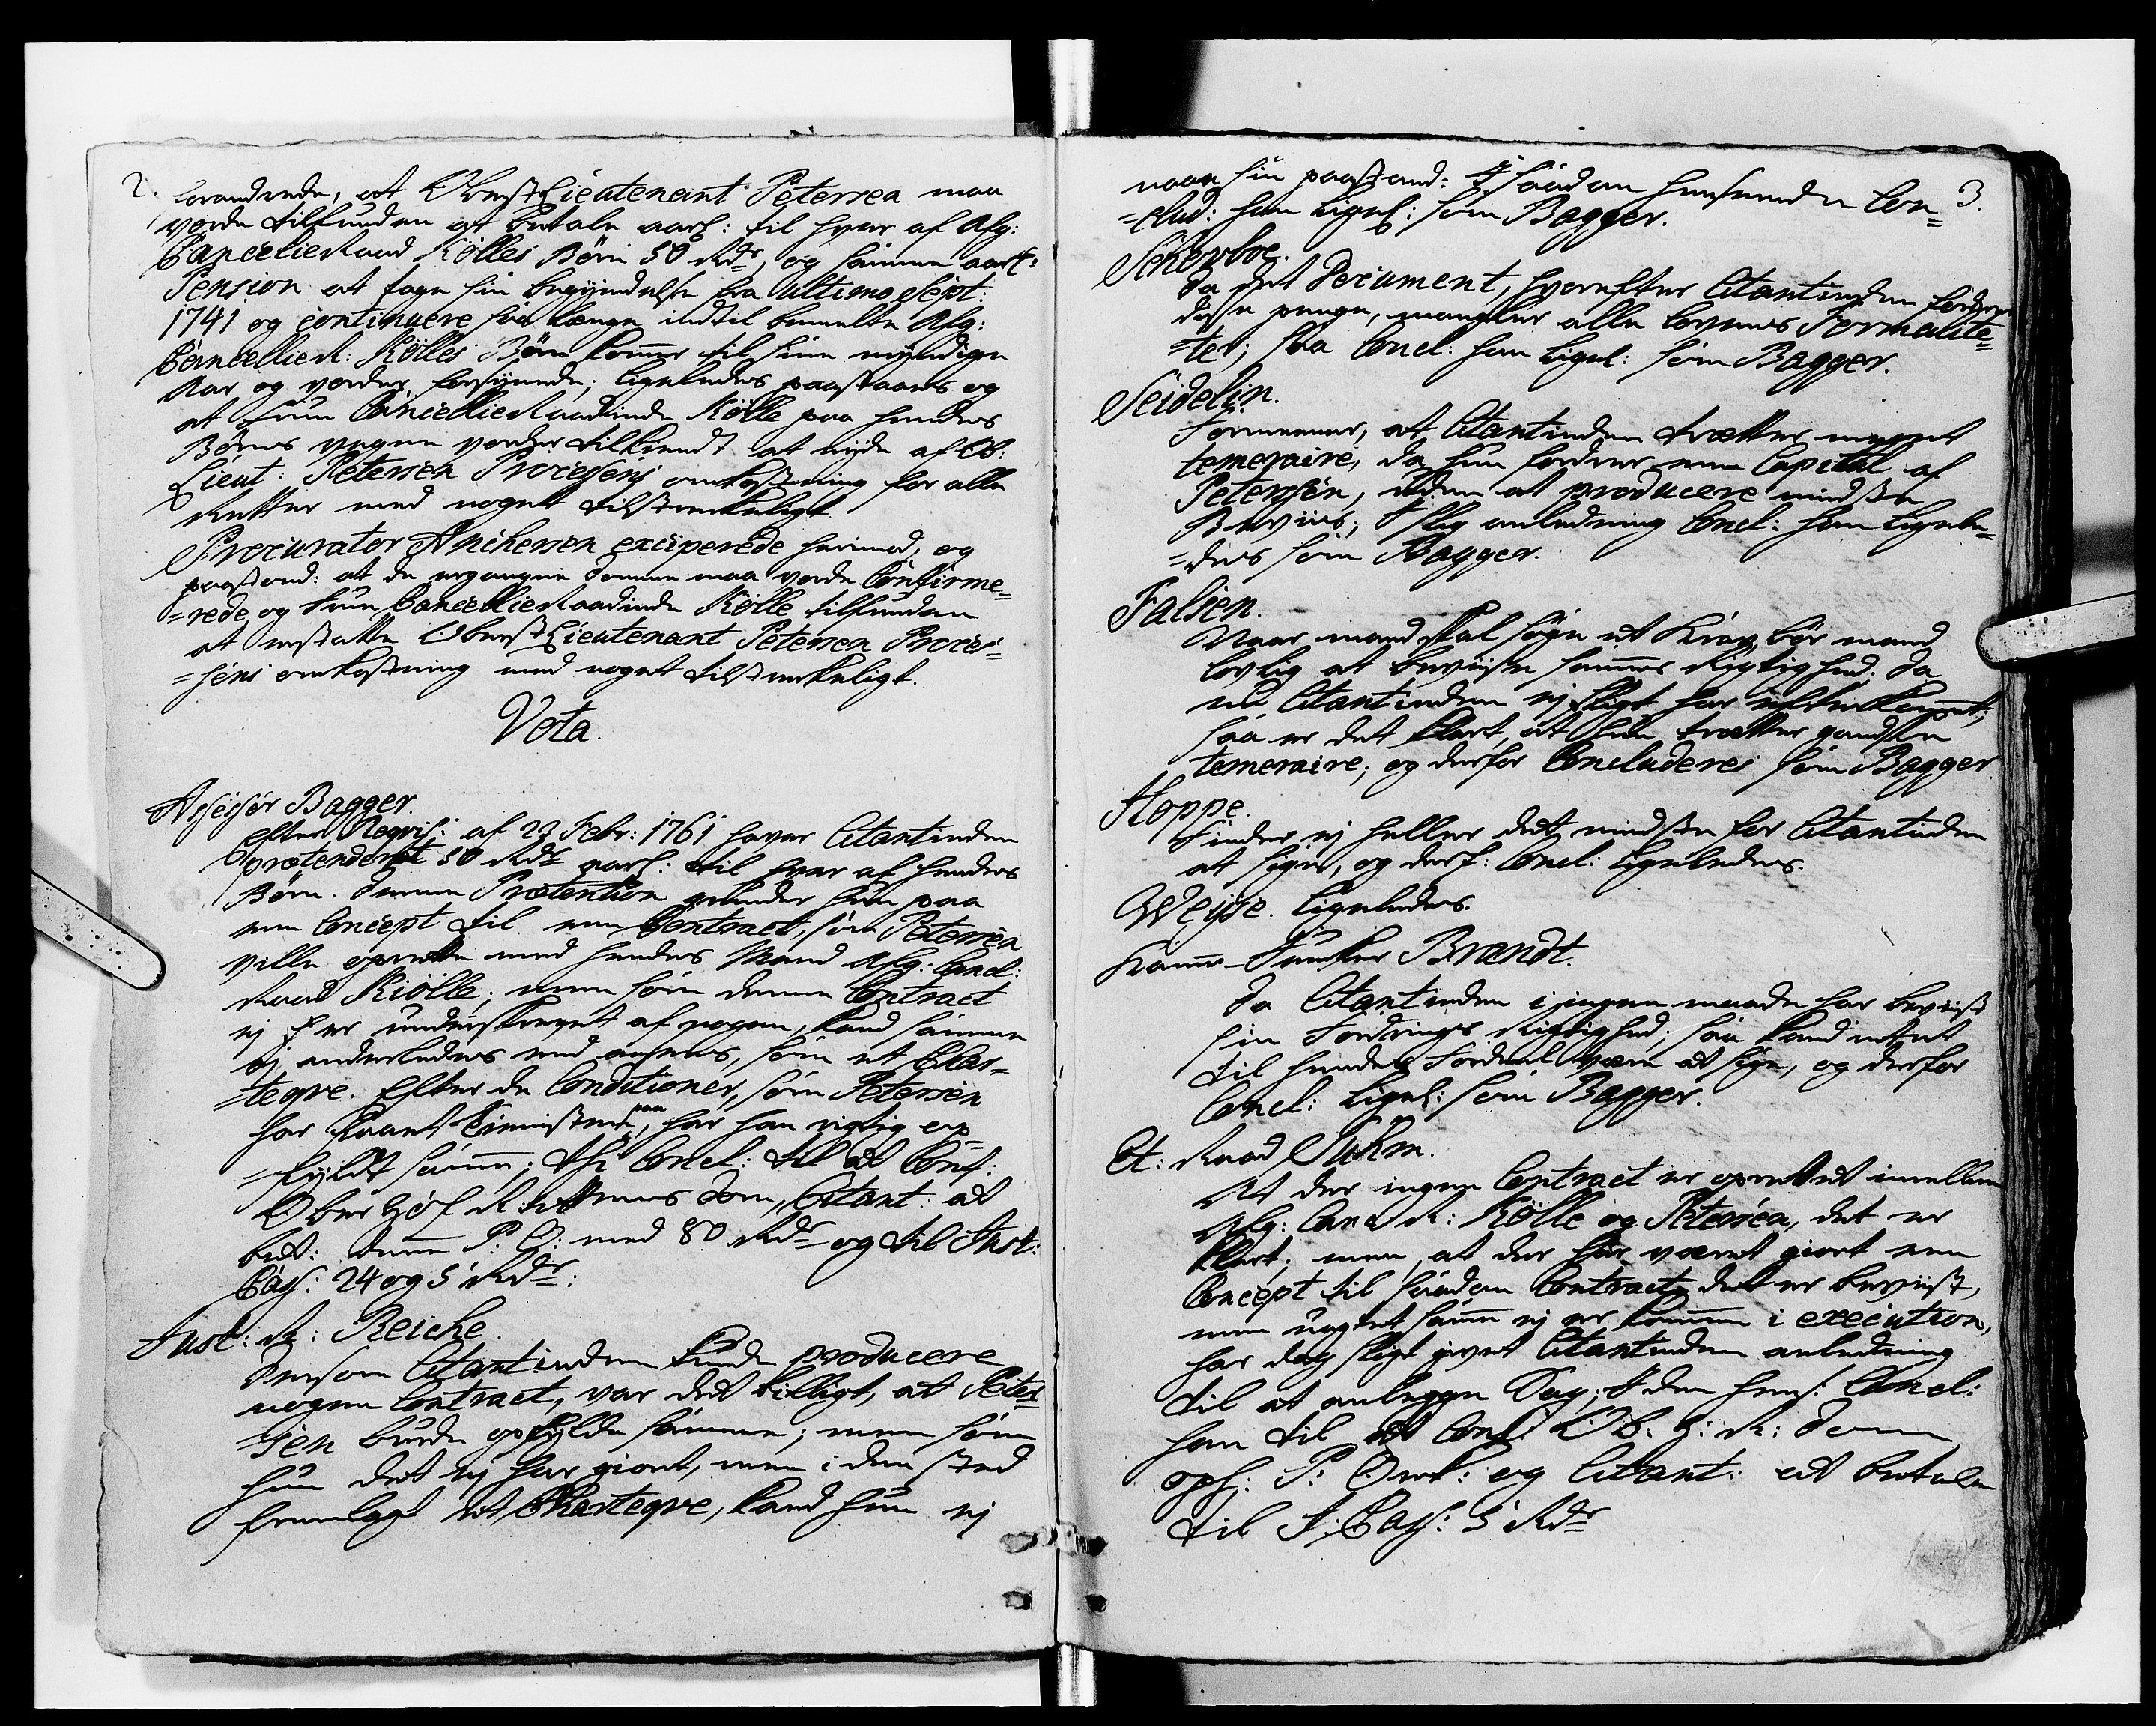 2.
forandrede, at Obrist Lieutenant Petersen maa
vorde tilfunden at betale aarl: til hver af Afg:
Cancelie Raad Kölles Börn 50 Rdr, og samme aarl:
Pension at tage sin begyndelse fra ultimo Sept:
1741 og continuere saa længe indtil bemelte Afg:
Cancellie R: Kölles Börn kommer til sine myndige
Aar og vorder forsynede; ligeledes paastaaes og
at Frue Cancellie Raadinde Kölle paa hendes
Börns vegne vorder tilkiendt at nyde af Ob:
Lieut: Petersen Processens omkostning for alle
Retter med noget tilstrækkeligt.
Procurator Anchersen exciperede herimod, og
paastand: at de ergangne Domme maa vorde Confirme-
=rede, og Frue Cancellie Raadinde Kölle tilfunden
at erstatte Oberst Lieutenant Petersen Proces-
=sens omkostning med noget tilstrekkeligt.
Vota.
Assessor Bagger.
Efter Reqvis: af 23 Febr: 1761 haver Citantinden
prætenderet 50 Rdr aarl: til hver af hendes
Börn. Denne Prætention grunder hun paa
een Concept til een Contract, som Petersen
ville oprette med hendes Mand Afg: Cancl:
Raad Kiölle; men som denne Contract
ej er underskrevet af nogen, kand samme
ej anderledes end ansees, som et Char-
=teqve. Efter de Conditioner, som Petersen
har faaet Tienisten paa, har han rigtig op-
=fyldt samme; thi Concl: til at Conf:
Ober Hof Rettens Dom, Citant: at
bet: denne P: O: med 80 Rdr og til Just:
Cass: 24 og 5 Rdr:
Just: R: Reiche.
Dersom Citantinden kunde producere
nogen Contract, var det billigt, at Peter-
=sen burde opfylde samme; men som
hun det ej har giort, men i den sted
fremlagt et Charteqve, kand hun ej
3.
naae sin paastand: I saadan henseende Con-
=clud: han ligel: som Bagger.
Schevboe.
Da det Document, hvorefter Citantinden fordrer
disse penge, mangler alle Lovens Formalite-
=ter; saa Concl: han ligel: som Bagger.
Seidelin.
Formeener, at Citantinden trætter meget
temeraire, da hun fordrer een Capital af
Petersen, uden at producere mindste
Beviis; I slig anledning Concl: han ligele-
=des som Bagger.
Falsen.
Naar mand skal söge et Krav, bör mand
lovlig at beviise sammes Rigtighed. Da
nu Citantinden ej sligt har efterkommet;
saa er det klart, at hun trætter gandske
temeraire; og derfor Concluderes som Bagger
Hoppe.
Finder ej heller det mindste for Citantinden
at sige, og derf: Concl: ligeledes.
Weyse. ligeledes.
Kamer-Junker Brandt.
Da Citantinden i ingen maade har beviist
sin Fordrings Rigtighed; saa kand intet
til hendes Fordeel være at sige, og derfor
Concl: ligel: som Bagger.
Et: Raad Suhm.
At der ingen Contract er oprettet imellem
Afg: Canc: R: Kölle og Petersen, det er
klart; men, at der har været giort een
Concept til saadan Contract, det er beviist,
men uagtet samme ej er kommen i execution,
har dog sligt givet Citantinden anledning
til at anlegge Sag; I den hens: Concl:
han til at Conf: Ob: H: R: Dom
oph: P: Omk: og Citant: at betale
til J: Cass: 5 Rdr